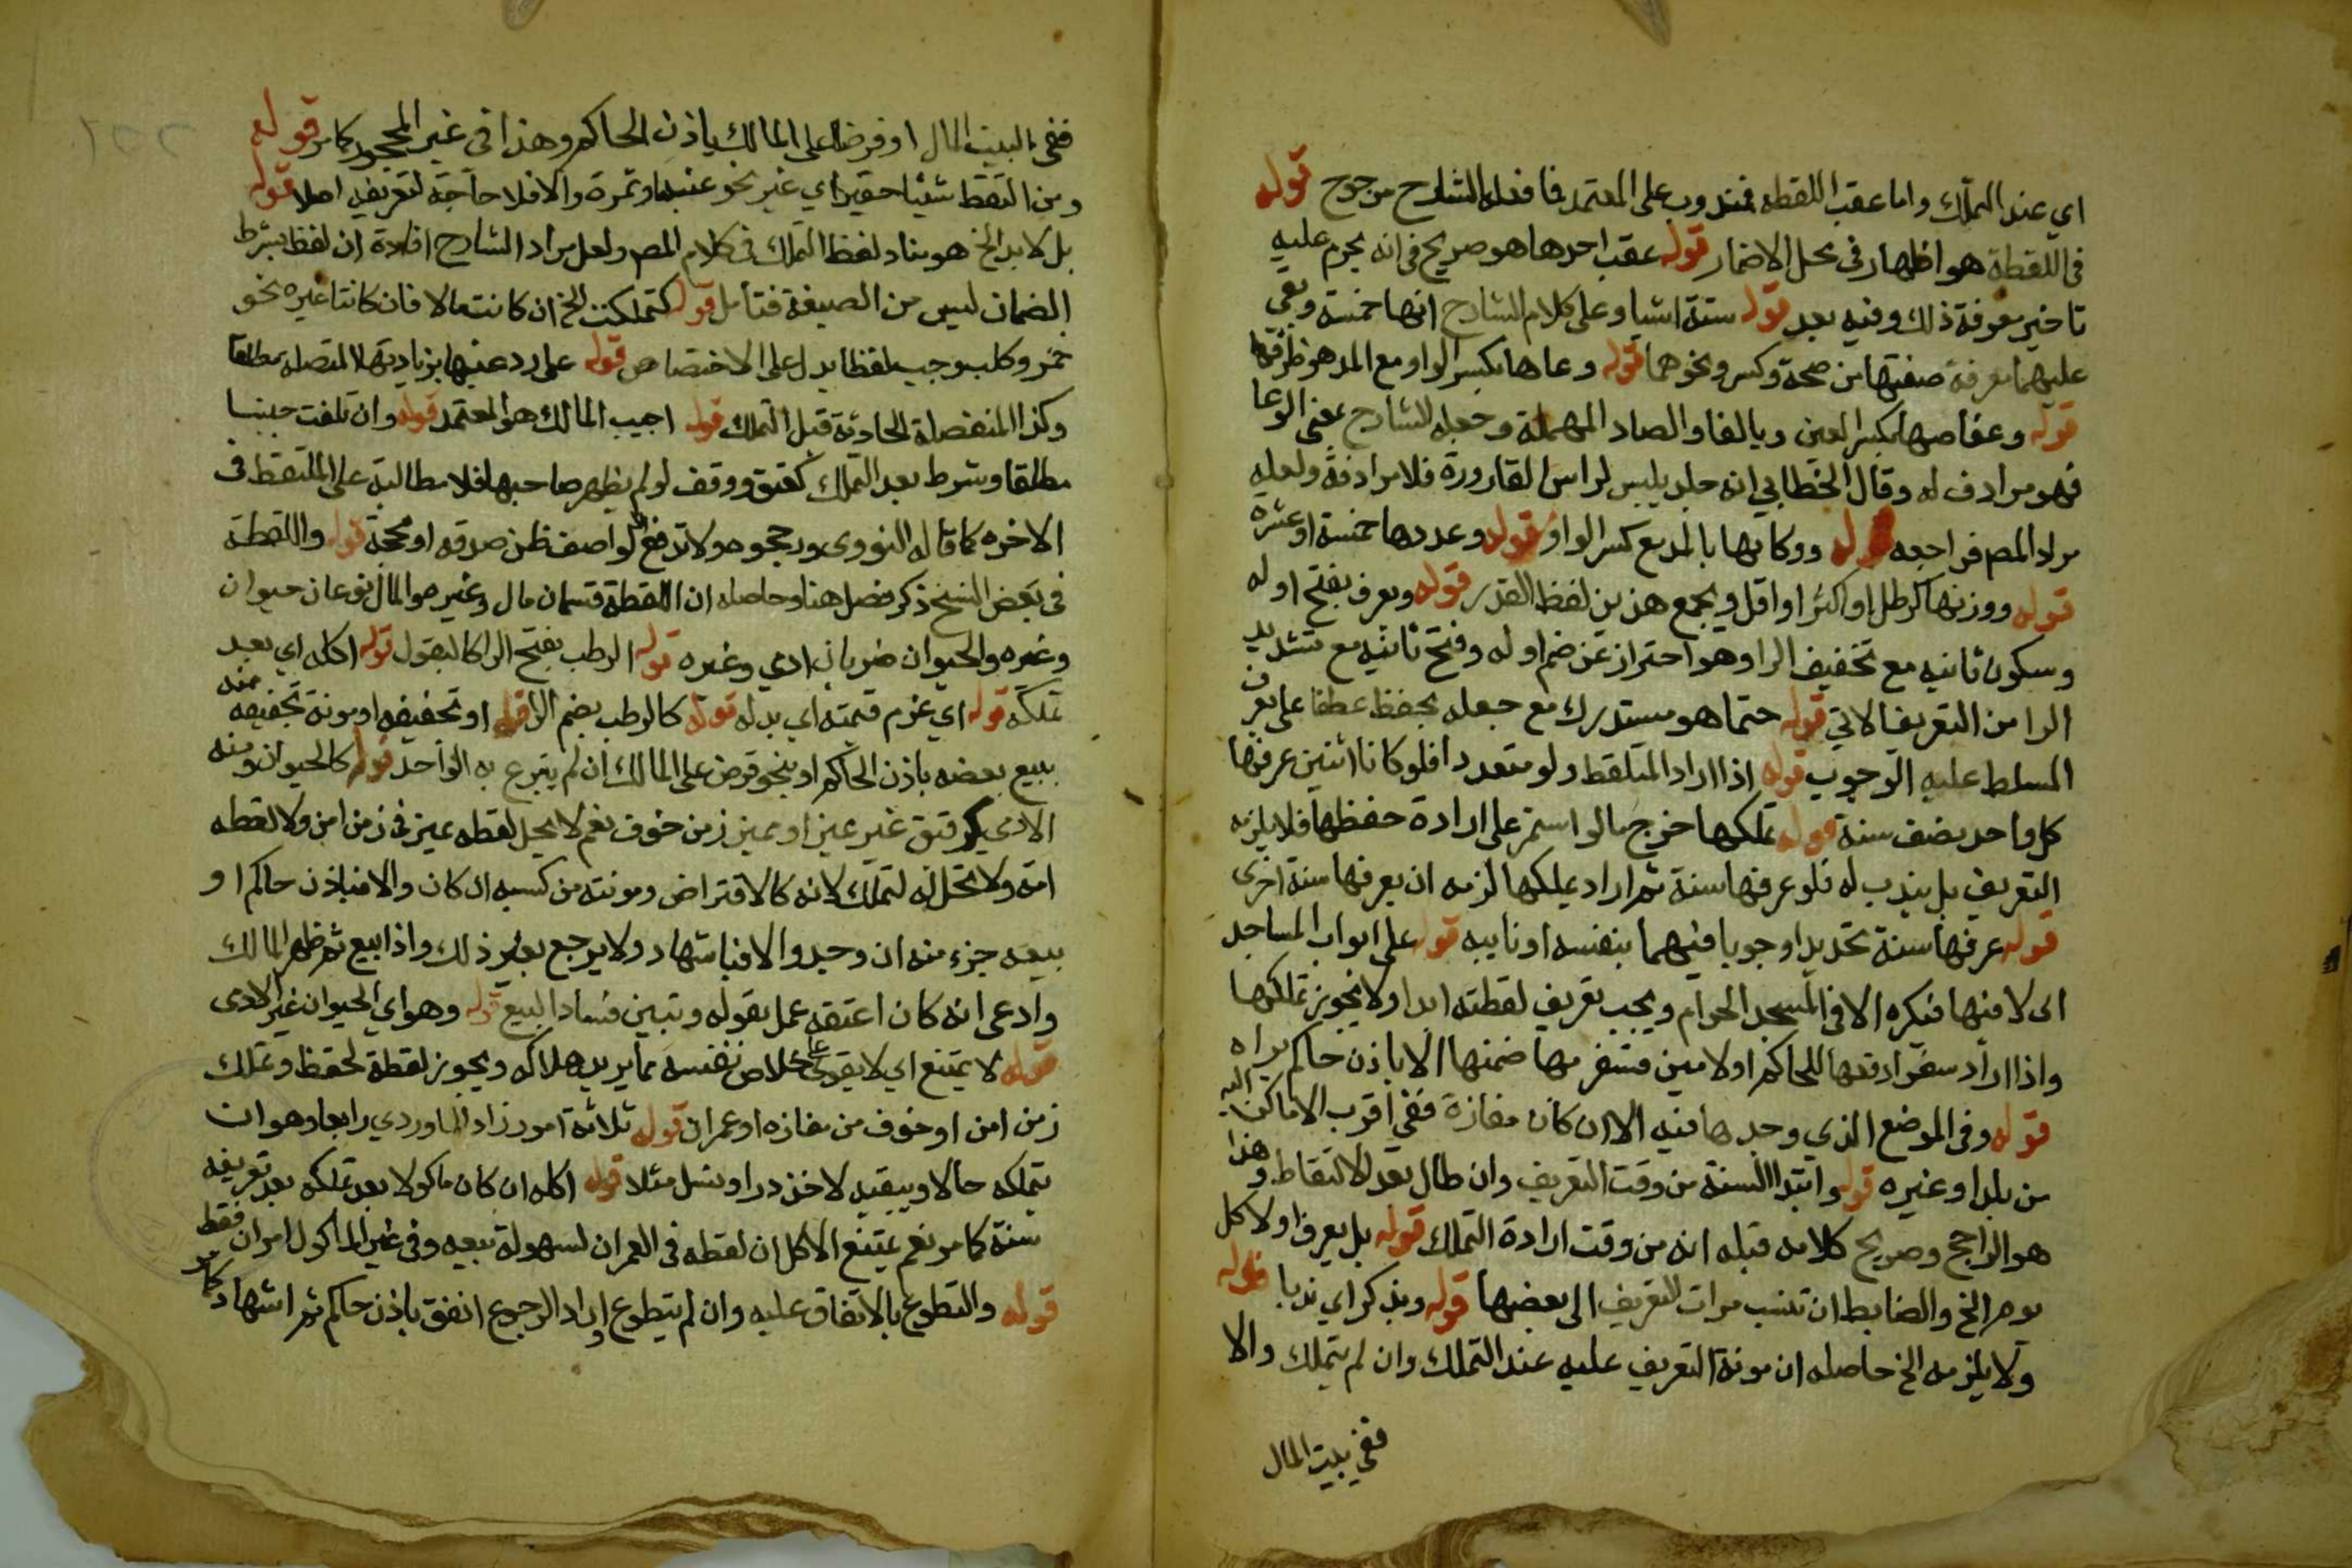 اي عند التملك واما عقب اللقطه فمندوب على المعتمد فما فعله الشارح مرجوح قوله
في اللقطة هو اظهار في محل الاضمار قوله عقب احدها هو صريح في انه يحرم عليه
تاخير معرفة ذلك وفيه بعد قوله ستة اشيا وعلى كلام الشارح انها خمسة وبقي
عليهما معرفة صفتها من صحة وكسر ونحوهما قوله وعاها بكسر الواو مع المد هو ظرفها
قوله وعفاصها بكسر العين وبالفا والصاد المهملة وجعله الشارح بمعنى الوعا
فهو مرادف له وقال الخطابي انه جلد يلبس لراس القارورة فلا مرادفة ولعله
مراد المص فراجعه قوله ووكائها بالمد مع كسر الواو قوله وعددها خمسة او عشرة
قوله ووزنها كرطل او اكثر او اقل ويجمع هذين لفظ القدر قوله ويعرف بفتح اوله
وسكون ثانيه مع تخفيف الرا وهو احتراز عن ضم اوله وفتح ثانيه مع تشديد
الرا من التعريف الاتي قوله حتما هو مستدرك مع جعله بحفظ عطفا على يعرف
المسلط عليه الوجوب قوله اذا اراد الملتقط ولو متعددا فلو كانا اثنين عرفها
كل واحد نصف سنة قوله تملكها خرج ما لو استمر على ارادة حفظها فلا يلزمه
التعريف بل يندب له فلو عرفها سنة ثم اراد تملكها لزمه ان يعرفها سنة اخرى
قوله عرفها سنة تحديدا وجوبا فيهما بنفسه او نايبه قوله على ابواب المساجد
اي لا فيها فيكره الا في المسجد الحرام ويجب تعريف لقطته ابدا ولا يجوز تملكها
واذا اراد سفرا دفعها للحاكم او لامين فسفر بها ضمنها الا باذن حاكم يراه
قوله وفي الموضع الذي وجدها فيه الا ان كان مفازة ففي اقرب الاماكن اليه
من بلد او غيره قوله وابتدا السنة من وقت التعريف وان طال بعد الالتقاط وهذا
هو الراجح وصريح كلامه قبله انه من وقت ارادة التملك قوله بل يعرف اولا كل
يوم الخ والضابط ان تنسب مرات التعريف الى بعضها قوله ويذكر اي ندبا قوله
ولا يلزمه الخ حاصله ان مونة التعريف عليه عند التملك وان لم يتملك والا
ففي بيت المال
ففي البيت المال او قرضا على المالك باذن الحاكم وهذا في غير المحجور كما مر قوله
ومن التقط شيئا حقيرا اي غير نحو عنبة او تمرة والا فلا حاجة لتعريفه اصلا قوله
بل لا بد الخ هو مفاد لفظ التملك في كلام المص ولعل مراد الشارح افادة ان لفظ بشرط
الضمان ليس من الصيغة فتامل قوله كتملكت الخ ان كانت مالا فان كانتا غيره نحو
خمر وكلب وجب لفظ يدل على الاختصاص قوله على رد عينها بزيادتها المتصله مطلقا
وكذا المنفصلة الحادثة قبل التملك قوله اجيب المالك هو المعتمد قوله وان تلفت حيسا
مطلقا وشرط بعد التملك كعتق ووقف لو لم يظهر صاحبها فلا مطالبة على الملتقط في
الاخره كما قاله النووي ورجحوه ولا تدفع لواصف ظن صدقه او بحجة قوله واللقطة
في بعض النسخ ذكر فصل هنا وحاصله ان اللقطة قسمان مال وغيره والمال نوعان حيوان
وغيره والحيوان ضربان ادمي وغيره قوله الرطب بفتح الرا كالبقول قوله اكله اي بعد
تملكه قوله اي غرم قيمته اي بدله قوله كالرطب بضم الرا قوله او تجفيفه او مونة تجفيفه منه
ببيع بعضه باذن الحاكم او بنحو قرض على المالك ان لم يتبرع به الواحد قوله كالحيوان ومنه
الادمي كرقيق غير مميز او مميز زمن خوف نعم لا يحل لقطه مميز في زمن امن ولا لقطه
امة ولا تحل له لتملك لانه كالاقتراض ومونته من كسبه ان كان والا فباذن حاكم او
ببيعه جزء منه ان وجد والا فباشهاد ولا يرجع بغير ذلك واذا بيع ثم ظهر المالك
وادعى انه كان اعتقه عمل بقوله وتبين فساد البيع قوله وهو اي الحيوان غير الادمي
قوله لا يمتنع اي لا يقوى على خلاص نفسه مما يريد هلاكه ويجوز لقطة لحفظ وتملك
زمن امن او خوف من مفازه او عمران قوله ثلاثة امور زاد الماوردي رابعا وهو ان
يتملكه حالا ويبقيه لاخذ درا ونسل مثلا قوله اكله ان كان ماكولا بعد تملكه بعد تعريفه
سنة كما مر نعم يمتنع الاكل ان لقطه في العمران لسهولة بيعه وفي غير الماكول امران فقط
قوله والتطوع بالاتفاق عليه وان لم يتطوع واراد الرجوع انفق باذن حاكم ثم اشهاد كما مر